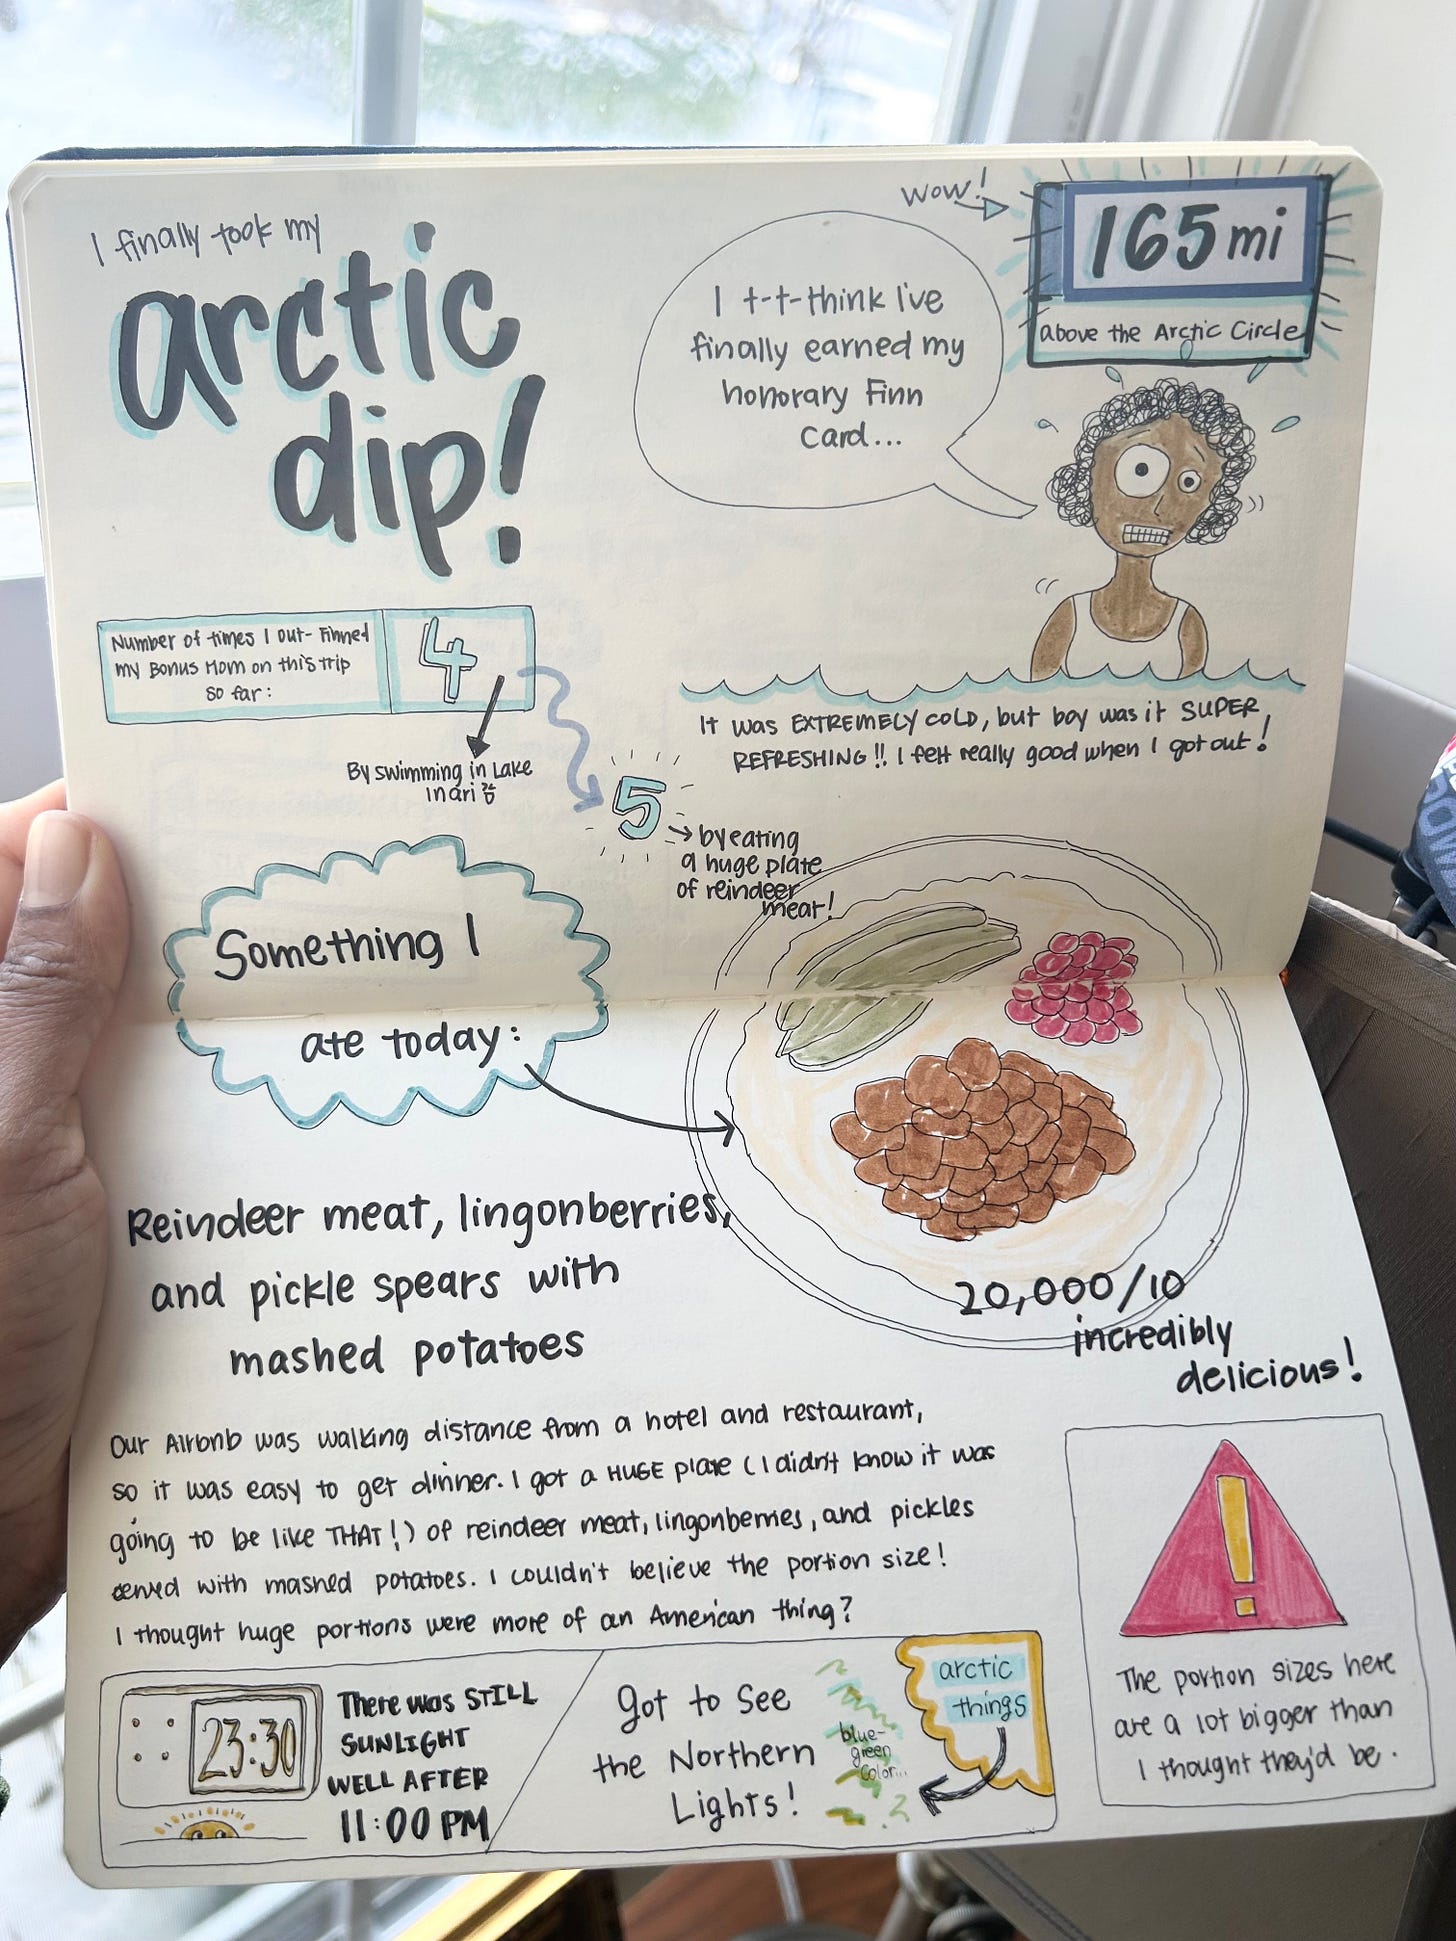 I finally took my
arctic
dip!
wow!
165mi
above the Arctic Circle
I t-t-think I've
finally earned my
honorary Finn
Card...
Number of times I out-Finned
my Bonus Mom on this trip
so far:
4
By swimming in Lake
Inari
5
by eating
a huge plate
of reindeer
meat!
It was EXTREMELY COLD, but boy was it SUPER
REFRESHING!! I felt really good when I got out!
Something I
ate today:
Reindeer meat, lingonberries,
and pickle spears with
mashed potatoes
20,000/10
incredibly
delicious!
Our Airbnb was walking distance from a hotel and restaurant,
so it was easy to get dinner. I got a HUGE plate (I didn't know it was
going to be like THAT!) of reindeer meat, lingonberries, and pickles
served with mashed potatoes. I couldn't believe the portion size!
I thought huge portions were more of an American thing?
!
The portion sizes here
are a lot bigger than
I thought they'd be.
23:30
There was STILL
SUNLIGHT
WELL AFTER
11:00 PM
Got to see
the Northern
Lights!
blue-
green
color...
arctic
things